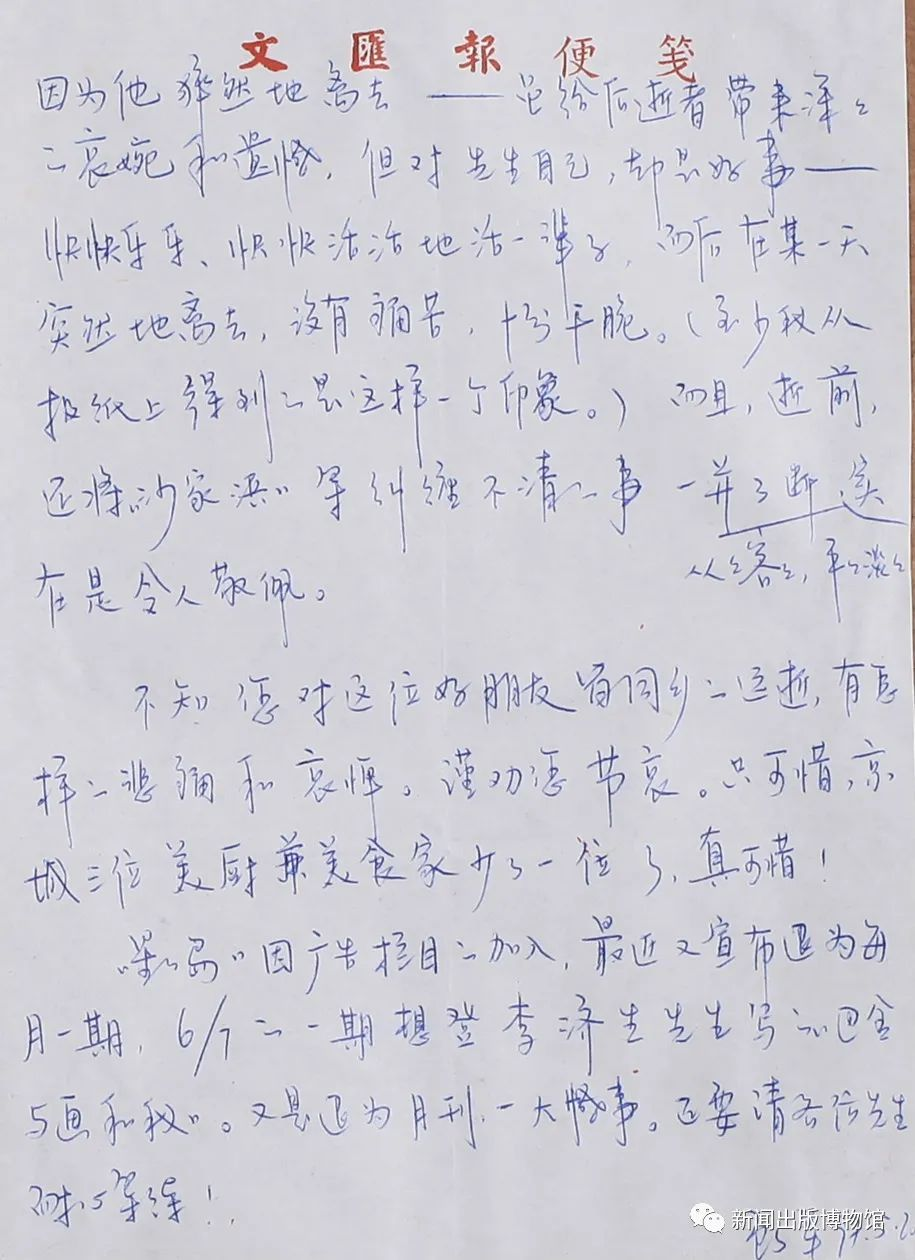 文匯報便箋
因为他猝然地离去——虽给后逝者带来深深
的哀婉和遗憾，但对先生自己，却是好事——
快快乐乐、快快活活地活一辈子，而后在某一天
突然地离去，没有痛苦，十分干脆。（至少我从
报纸上得到的是这样一个印象。）而且，逝前，
还将“沙家浜”等纠缠不清的事一并了断，实
从从容容，平平淡淡
在是令人敬佩。
不知您对这位好朋友 同乡的远逝，有怎
样的悲痛和哀悼。谨劝您节哀。只可惜，京
城三位美厨兼美食家少了一位了，真可惜！
因广告栏目的加入，最近又宣布退为每
月一期，6/7的一期想登李济生先生写的“巴金
与画和我”。又是退为月刊，一大憾事。还要请各位先生
耐心等待！
新闻出版博物馆